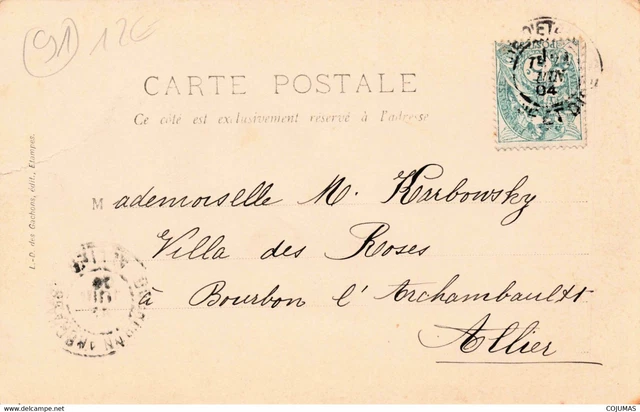 91 12€
CARTE POSTALE
Ce côté est exclusivement réservé à l'adresse
Mademoiselle M. Karbowsky
Villa des Roses
à Bourbon l'Archambault
Allier
L.-D. des Gachons, édit., Etampes
JUIN
04
ALLIER
www.delcampe.net
COJUMAS